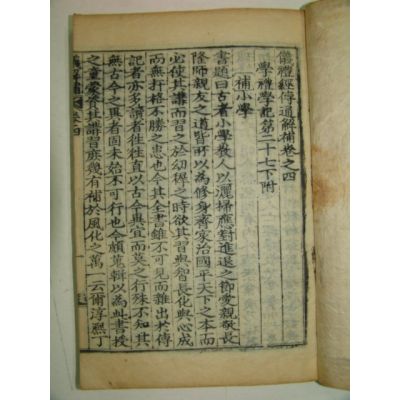 儀禮經傳通解補卷之四
學禮學記第二十七下附
補小學
書題曰古者小學敎人以灑掃應對進退之節愛親敬長
隆師親友之道皆所以爲修身齊家治國平天下之本而
必使其講而習之於幼穉之時欲其習與智長化與心成
而無扞格不勝之患也今其全書雖不可見而雜出於傳
記者亦多讀者往往直以古今異宜而莫之行殊不知其
無古今之異者固未始不可行也今頗蒐輯以爲此書授
之童蒙資其講習庶幾有補於風化之萬一云爾淳熙丁